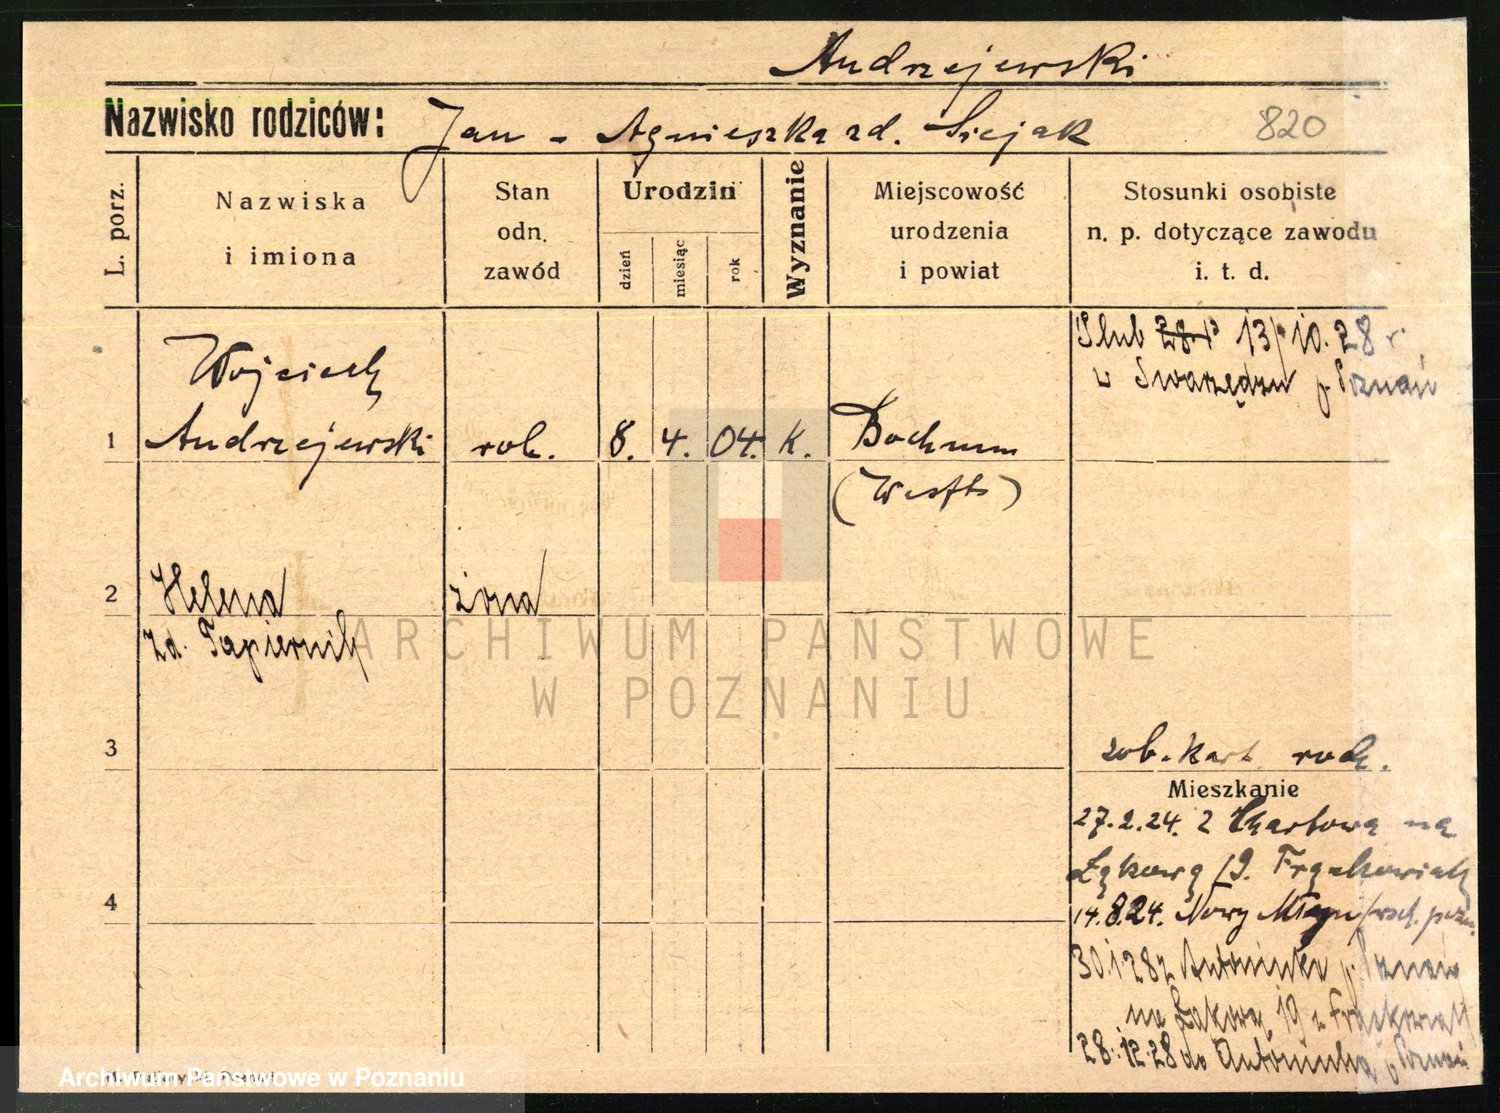 Andrzejewski
Nazwisko rodziców: Jan - Agnieszka zd. Siejak
820
L. porz.
Nazwiska
i imiona
Stan
odn.
zawód
Urodzin
dzień
miesiąc
rok
Wyznanie
Miejscowość
urodzenia
i powiat
Stosunki osobiste
n. p. dotyczące zawodu
i. t. d.
Ślub 13/10.28 r.
w Swarzędzu p. Poznań
Wojciech
1 Andrzejewski rob. 8. 4. 04. k. Bochum
(Westf)
2 Helena żona
zd. Papiernik
ARCHIWUM PAŃSTWOWE
W POZNANIU
3
zob. kart. rodz.
Mieszkanie
27.2.24. z Chartowa na
Łąkową 19. Frąckowiak
4
14.8.24. Nowy Młyn wsch. pozn.
30.1.28 z Antoninka p. Poznań
na Łąkową 19 z Frąckowiak
28.12.28 do Antoninka p. Poznań
Archiwum Państwowe w Poznaniu